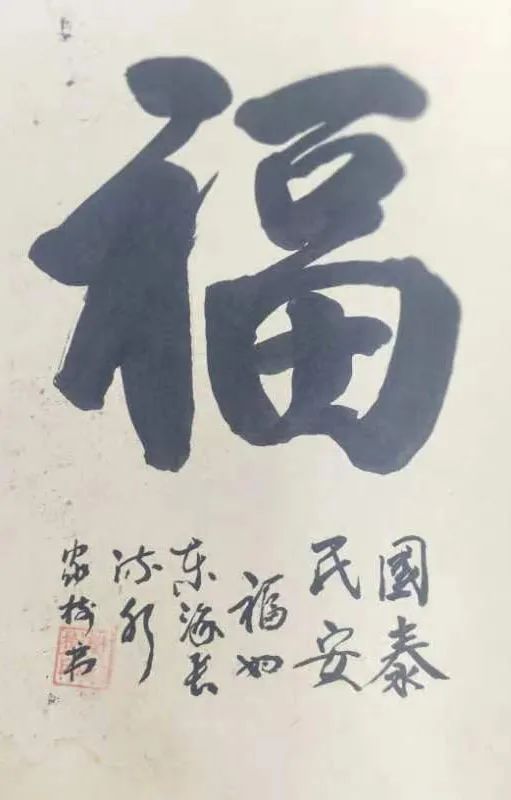 福
國泰
民安
福如
东海长
流水
家树书